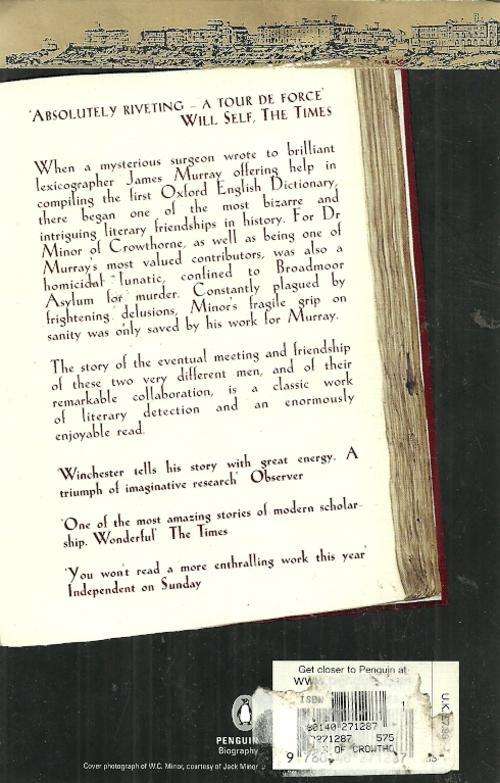 'ABSOLUTELY RIVETING – A TOUR DE FORCE'
WILL SELF, THE TIMES
When a mysterious surgeon wrote to brilliant
lexicographer James Murray offering help in
compiling the first Oxford English Dictionary,
there began one of the most bizarre and
intriguing literary friendships in history. For Dr
Minor of Crowthorne, as well as being one of
Murray's most valued contributors, was also a
homicidal lunatic, confined to Broadmoor
Asylum for murder. Constantly plagued by
frightening delusions, Minor's fragile grip on
sanity was only saved by his work for Murray.
The story of the eventual meeting and friendship
of these two very different men, and of their
remarkable collaboration, is a classic work
of literary detection and an enormously
enjoyable read.
'Winchester tells his story with great energy. A
triumph of imaginative research' Observer
'One of the most amazing stories of modern scholar-
ship. Wonderful' The Times
'You won't read a more enthralling work this year'
Independent on Sunday
Get closer to Penguin at
ISBN
00140-271287
271287 575
OF CROWTHO
U.K.
PENGUIN
Biography
Cover photograph of W.C. Minor, courtesy of Jack Minor